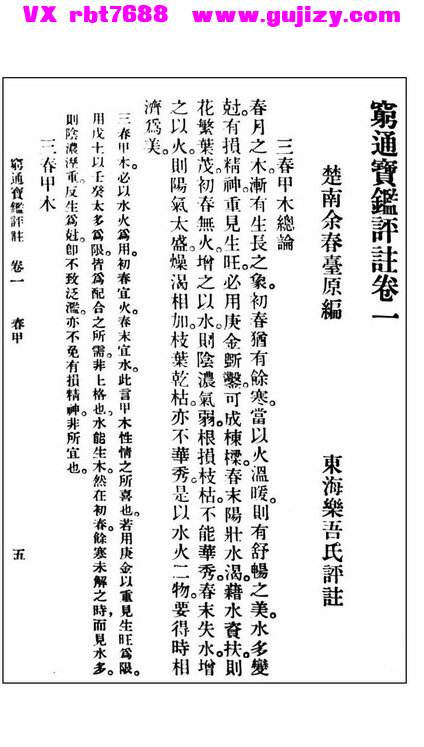 VX rbt7688 www.gujizy.com
窮通寶鑑評註卷一
楚南余春臺原編 東海樂吾氏評註
三春甲木總論
春月之木。漸有生長之象。初春猶有餘寒。當以火溫暖。則有舒暢之美。水多變
尅。有損精神。重見生旺。必用庚金斲鑿。可成棟樑。春末陽壯水渴。藉水資扶。則
花繁葉茂。初春無火。增之以水。則陰濃氣弱。根損枝枯。不能華秀。春末失水。增
之以火。則陽氣太盛。燥渴相加。枝葉乾枯。亦不華秀。是以水火二物。要得時相
濟爲美。
三春甲木。必以水火爲用。初春宜火。春末宜水。此言甲木性情之所喜也。若用庚金以重見生旺爲限。
用戊土以壬癸太多爲限。皆爲配合之所需。非上格也。水能生木。然在初春。餘寒未解之時。而見水多。
則陰濃溼重。反生爲尅。卽不致泛濫。亦不免有損精神。非所宜也。
三春甲木
窮通寶鑑評註 卷一 春甲 五